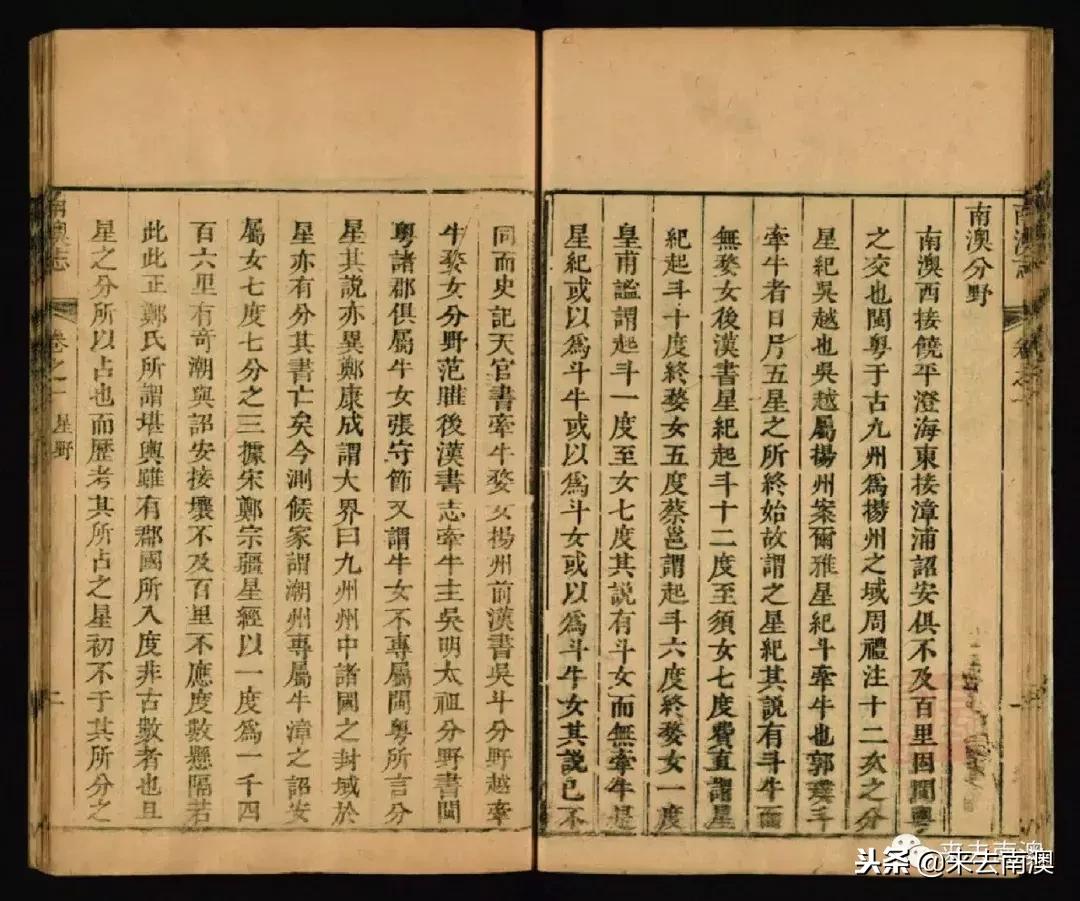 南澳志 卷之一
南澳分野
南澳西接饒平澄海東接漳浦詔安俱不及百里因閩粵
之交也閩粵于古九州爲揚州之域周禮注十二亥之分
星紀吳越也吳越屬揚州案爾雅星紀斗牽牛也郭璞斗
牽牛者日月五星之所終始故謂之星紀其說有斗牛而
無婺女後漢書星紀起斗十二度至須女七度費直謂星
紀起斗十度終婺女五度蔡邕謂起斗六度終婺女一度
皇甫謐謂起斗一度至女七度其說有斗女而無牽牛是
星紀或以爲斗牛或以爲斗女或以爲斗牛女其說已不
同而史記天官書牽牛婺女揚州前漢書吳斗分野越牽
牛婺女分野范雎後漢書志牽牛主吳明太祖分野書閩
粵諸郡俱屬牛女張守節又謂牛女不專屬閩粵所言分
星其說亦異鄭康成謂大界曰九州州中諸國之封域於
星亦有分其書亡矣今測候家謂潮州專屬牛漳之詔安
屬女七度七分之三據宋鄭宗疆星經以一度爲一千四
百六里有奇潮與詔安接壤不及百里不應度數懸隔若
此此正鄭氏所謂堪輿雖有郡國所入度非古數者也且
星之分所以占也而歷考其所占之星初不于其所分之
南澳志 卷之一 星野 二
来去南澳
头条@来去南澳